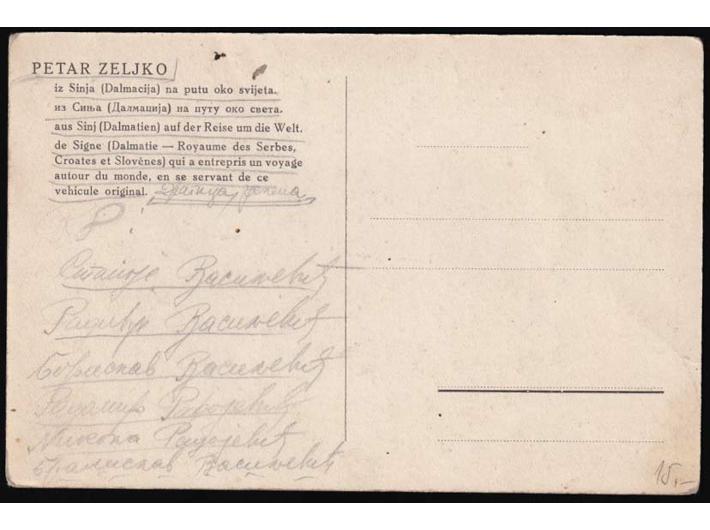 PETAR ZELJKO
iz Sinja (Dalmacija) na putu oko svijeta.
из Сиња (Далмација) на путу око света.
aus Sinj (Dalmatien) auf der Reise um die Welt.
de Signe (Dalmatie — Royaume des Serbes,
Croates et Slovènes) qui a entrepris un voyage
autour du monde, en se servant de ce
vehicule original.
Василевић
Василевић
Борислав Василевић
Никола Радојевић
Бранислав Василевић
15,-